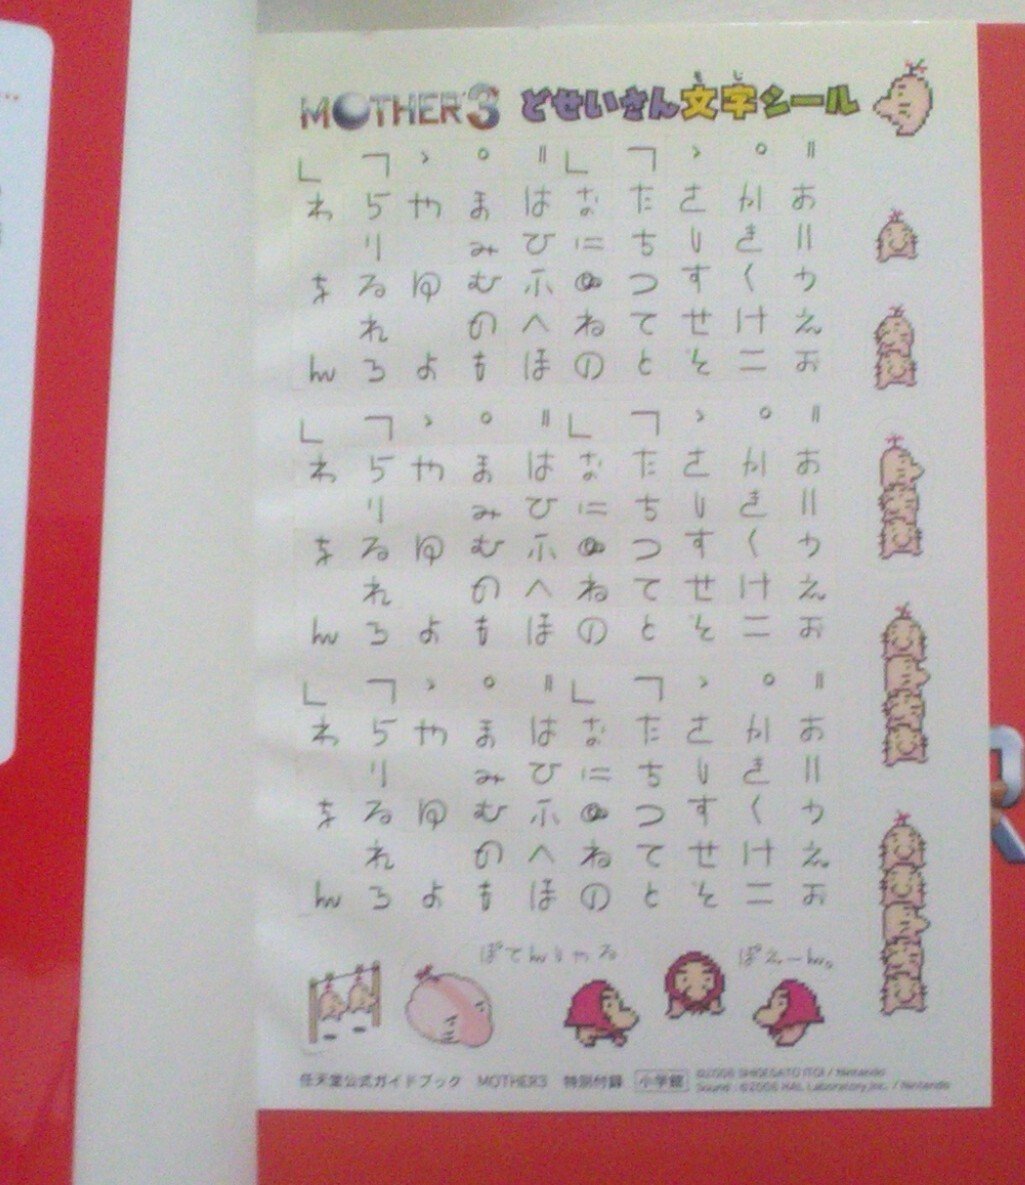 MOTHER3 どせいさん文字シール
゛あいうえお
゜かきくけこ
、さしすせそ
「たちつてと
」なにぬねの
゛はひふへほ
゜まみむめも
、やゆよ
「らりるれろ
」わをん
゛あいうえお
゜かきくけこ
、さしすせそ
「たちつてと
」なにぬねの
゛はひふへほ
゜まみむめも
、やゆよ
「らりるれろ
」わをん
゛あいうえお
゜かきくけこ
、さしすせそ
「たちつてと
」なにぬねの
゛はひふへほ
゜まみむめも
、やゆよ
「らりるれろ
」わをん
ぽてんしゃる
ぽえーん。
任天堂公式ガイドブック MOTHER3 特別付録 小学館
©2006 SHIGESATO ITOI / Nintendo
Sound : ©2006 HAL Laboratory,Inc. / Nintendo